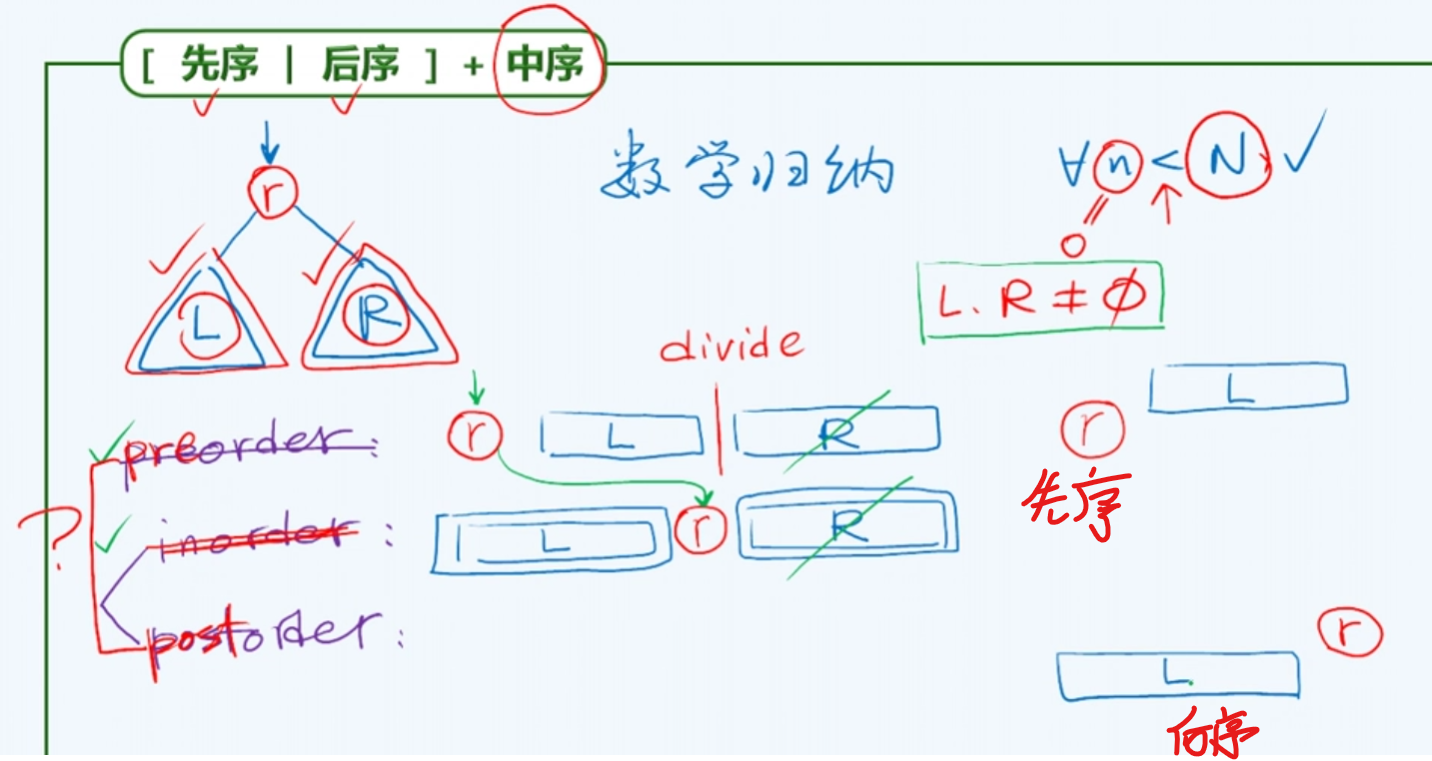 [ 先序 | 后序 ] + 中序
数学归纳
∀ n < N ✓
0
L. R ≠ ∅
r
L R
divide
preorder: r L R
r L
先序
inorder: L r R
postorder:
r
L
后序